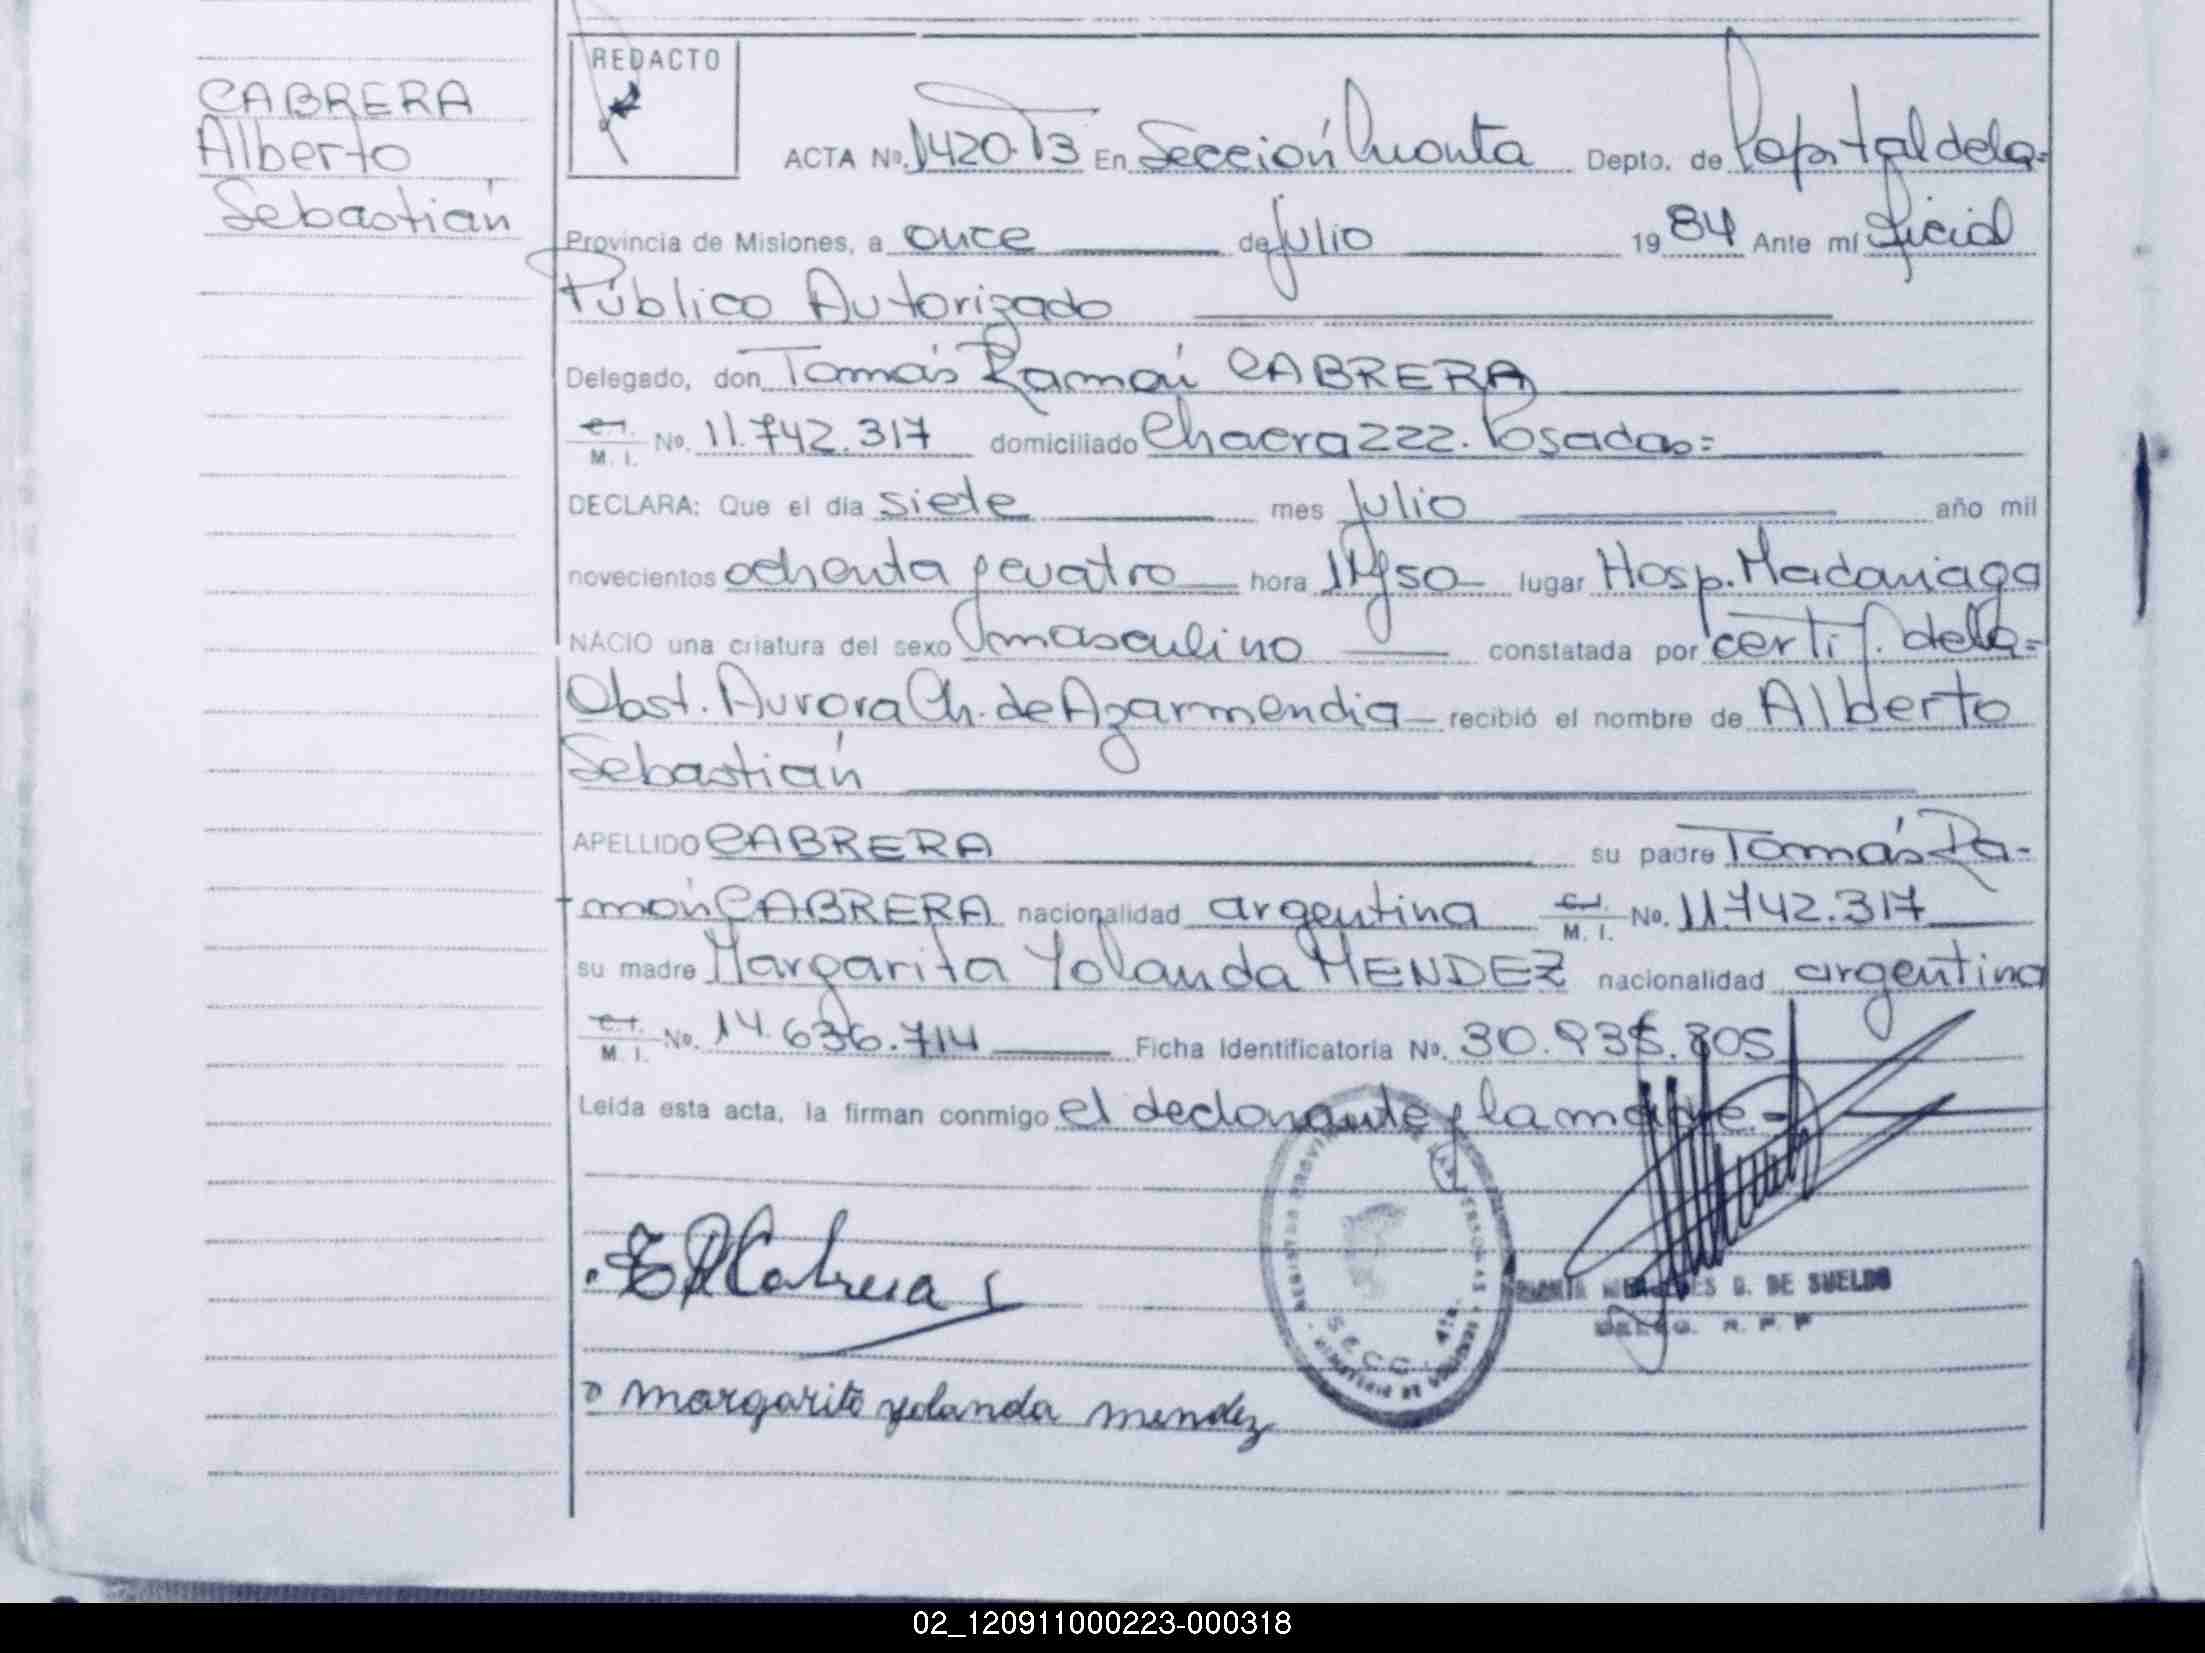 CABRERA
Alberto
Sebastián
REDACTO
ACTA Nº. 1420-T3 En Sección Cuarta Depto. de Capital de la=
Provincia de Misiones, a once de julio 1984 Ante mí Oficial
Público Autorizado
Delegado, don Tomás Ramón CABRERA
C.I. M. I. Nº. 11.742.317 domiciliado Chacra 222. Posadas=
DECLARA: Que el día siete mes julio año mil
novecientos ochenta y cuatro hora 14y50 lugar Hosp. Madariaga
NACIO una criatura del sexo masculino constatada por certif. de la=
Obst. Aurora Ch. de Azarmendia recibió el nombre de Alberto
Sebastián
APELLIDO CABRERA su padre Tomás Ra-
món CABRERA nacionalidad argentina C.I. M. I. Nº. 11.742.317
su madre Margarita Yolanda MENDEZ nacionalidad argentina
C.I. M. I. Nº. 14.636.714 Ficha Identificatoria Nº. 30.935.805
Leída esta acta, la firman conmigo el declarante y la madre.-
T R Cabrera
margarita yolanda mendez
SECC. 4ta.
G. DE SUELDO
DELEG. R. P. P
02_120911000223-000318